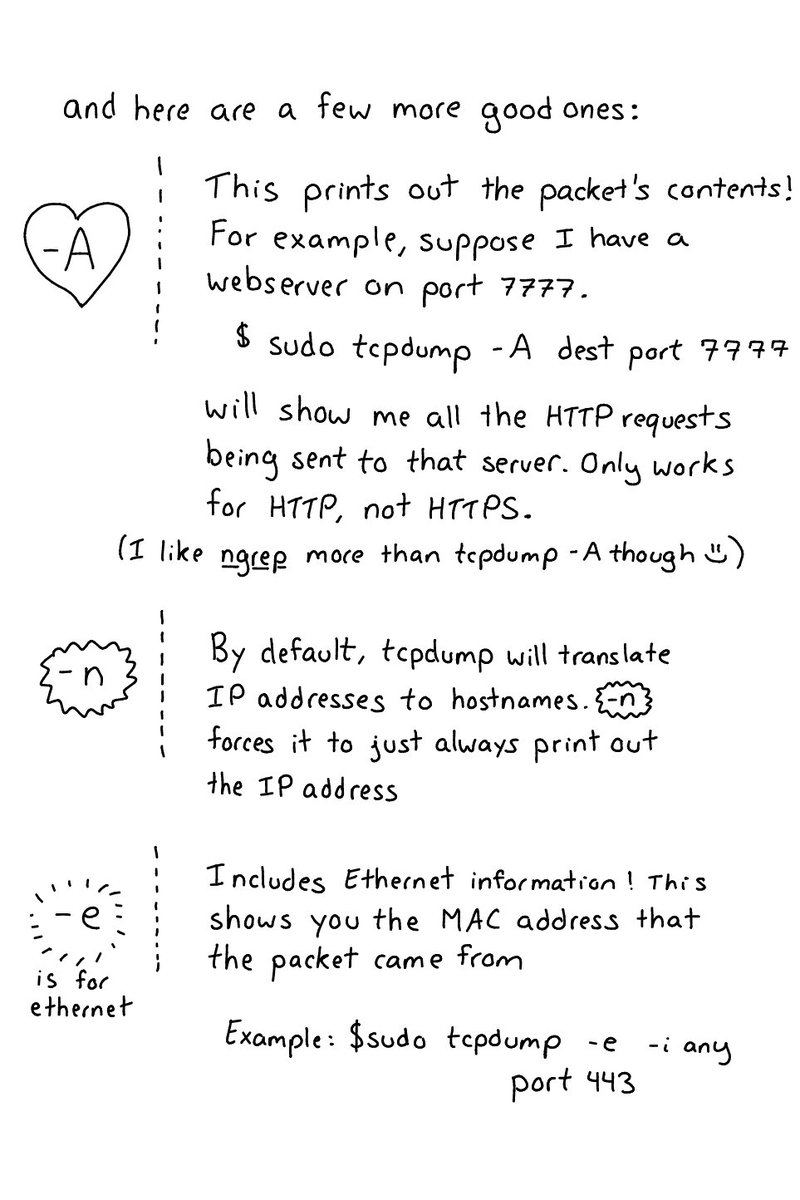 and here are a few more good ones:
-A
This prints out the packet's contents!
For example, suppose I have a
webserver on port 7777.
$ sudo tcpdump -A dest port 7777
will show me all the HTTP requests
being sent to that server. Only works
for HTTP, not HTTPS.
(I like ngrep more than tcpdump -A though )
-n
By default, tcpdump will translate
IP addresses to hostnames. -n
forces it to just always print out
the IP address
-e
is for
ethernet
Includes Ethernet information! This
shows you the MAC address that
the packet came from
Example: $sudo tcpdump -e -i any
port 443